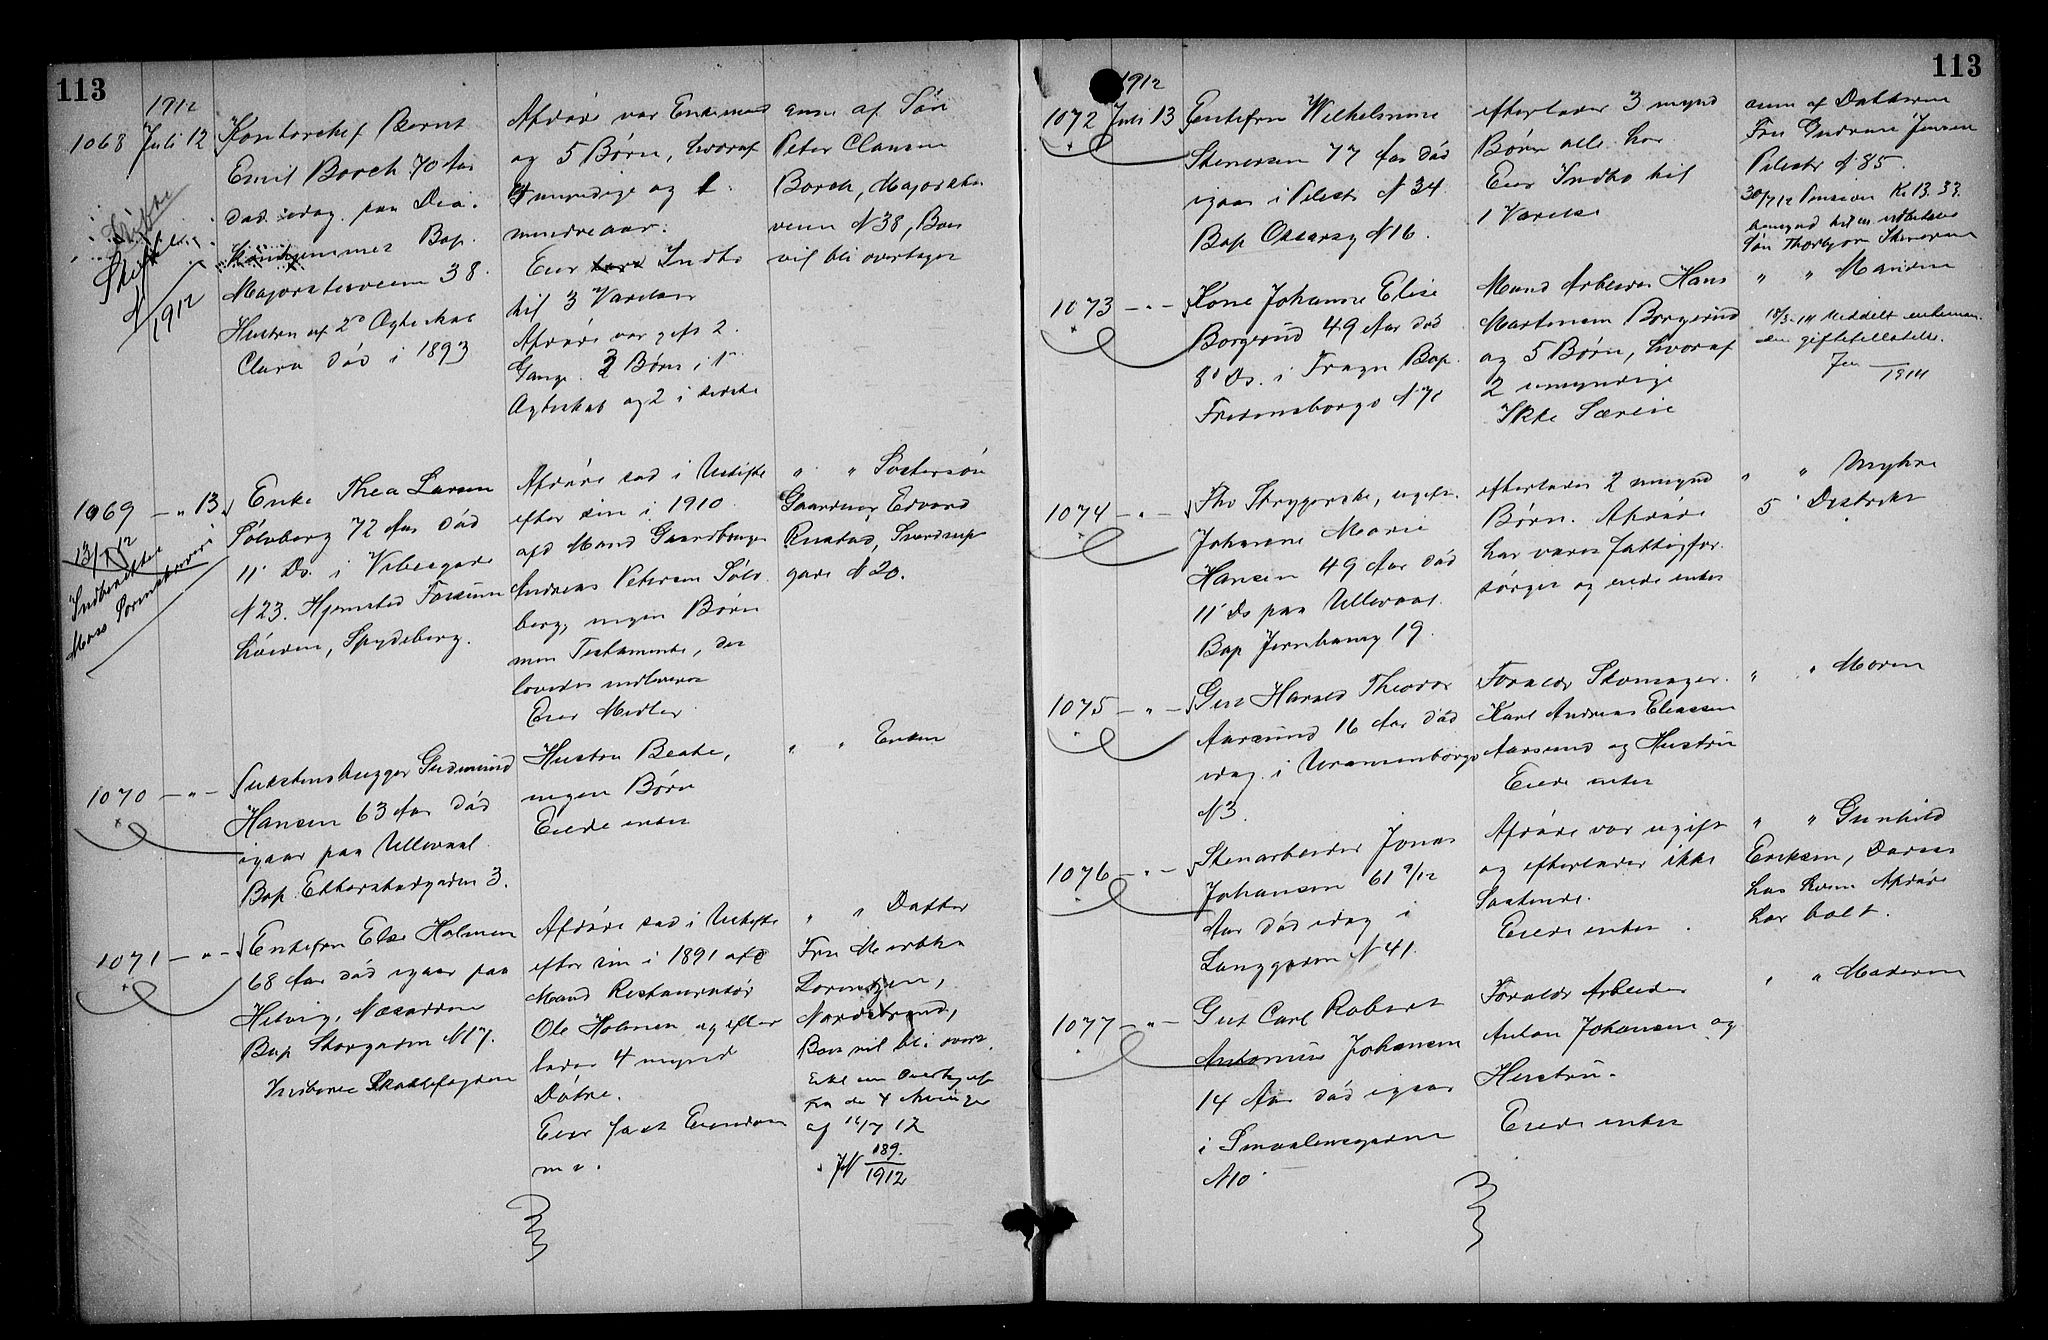 113
1912
1068 Juli 12
Kontorchef Bernt
Emil Borch 70 Aar
død idag paa Dia.
Bop.
Majorstuveien 38.
Hustru af 2' Ægteskab
Clara død i 1893
Skifte
1912
Afdøde var Enkemand
og 5 Børn, hvoraf
4 myndige og 1
mindreaar.
Eier Indbo
til 3 Værelser
Afdøde var gift 2
Gange. 3 Børn i 1'
Ægteskab og 2 i sidste
anm af Søn
Peter Clausen
Borch, Majorstu
veien N 38, Boet
vil bli overtaget
1069 — " 13
13/7 12
Indberettet
Moss Sorenskriveri
Enke Thea Larsen
Sølvberg 72 Aar død
11' Ds. i Vibesgade
N 23. Hjemsted Fossum
Spydeberg.
Afdøde sad i Uskifte
efter sin i 1910
afd Mand Gaardbruger
Andreas Petersen Sølv
berg, ingen Børn
men Testamente, der
lovedes indleveret
Eier Midler
" " Søstersøn
Gaardeier Edvard
Rustad, Sverdrups
gade N 20.
1070 — " —
Gudmund
Hansen 63 Aar død
igaar paa Ullevaal
Bop. Etterstadgaden 3.
Hustru Beate,
ingen Børn
Eiede intet
" " Enken
1071 — " —
Enkefru Else Holmen
68 Aar død igaar paa
Helvig, Næsodden
Bop Storgaden N 17.
Afdøde sad i Uskifte
efter sin i 1891 afd
Mand Restauratør
Ole Holmen og efter
lader 4 mynd
Døtre.
Eier fast Eiendom
m v.
" " Datter
Fru Martha
Lorentzen,
Nordstrand,
Boet vil bli overt.
fra de 4 Arvinger
af 16/7 12
189.
1912
113
1912
1072 Juli 13
Enkefru Wilhelmine
Stenersen 77 Aar død
igaar i Pilestr N 34
Bop Oscarsg N 16.
efterlader 3 mynd
Børn alle her
Eier Indbo til
1 Værelse
anm af Datteren
Fru Gudrun Jensen
Pilestr N 85.
30/7 12 Pension Kr. 13.33
Søn Thorbjørn Stenersen
1073 — " —
Kone Johanne Elise
Borgerud 49 Aar død
8' Ds. i Frogn Bop.
Fredensborgv N 71
Mand Arbeider Hans
Martinsen Borgerud
og 5 Børn, hvoraf
2 umyndige
Ikke Særeie
" " Manden
18/3-14 Meddelt enkeman
den giftetilladelse.
1914
1074 — " —
Fhv Strygerske, ugift
Johanne Marie
Hansen 49 Aar død
11' Ds paa Ullevaal.
Bop Jernbaneg 19.
efterlader 2 umynd
Børn. Afdøde
har været fattigfor.
sørget og eiede intet
" " Myhre
5' Distrikt
1075 — " —
Gut Harald Theodor
Aarsund 16 Aar død
idag i Uranienborgv
N 3
Forældr Skomager.
Karl Andreas Eliassen
Aarsund og Hustru
Eiede intet
" " Moren
1076 — " —
Stenarbeider Jonas
Johansen 61 9/12
Aar død idag i
Langgaden N 41.
Afdøde var ugift
og efterlader ikke
Slægtninge.
Eiede intet
" " Gunhild
Eriksen,
hos hvem Afdøde
har boet.
1077 — " —
Gut Carl Robert
Antonius Johansen
14 Aar død igaar
i Smaalensgaden
N 10
Forældr Arbeider
Anton Johansen og
Hustru.
Eiede intet
" " Moderen